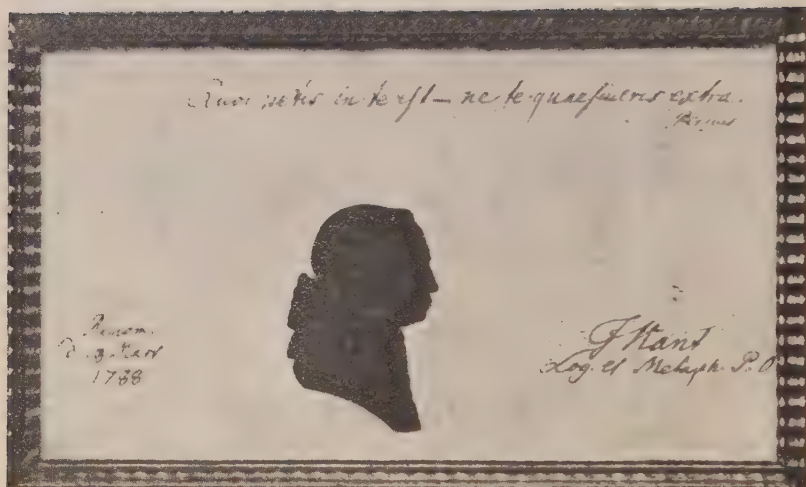 Quod petis in te est — ne te quaesiveris extra.
Persius
Regiom.
d. 3 Mart
1788
I Kant
Log. et Metaph. P. O